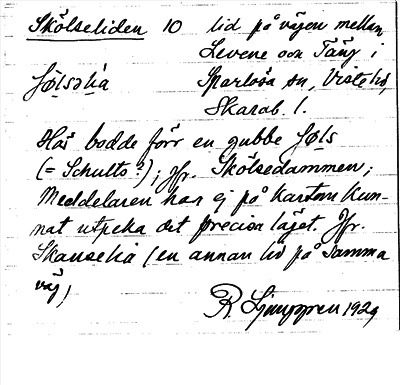 Skölseliden 10 lid på vägen mellan
Levene och Täng i
Sparlösa sn, Viste hd,
Skarab. l.
Här bodde förr en gubbe Jøls
(= Schultz?); Jfr. Skölsedammen;
Meddelaren har ej på kartan kun-
nat utpeka det precisa läget. Jfr.
Skanselia (en annan lid på samma
väg)
R Ljunggren 1929